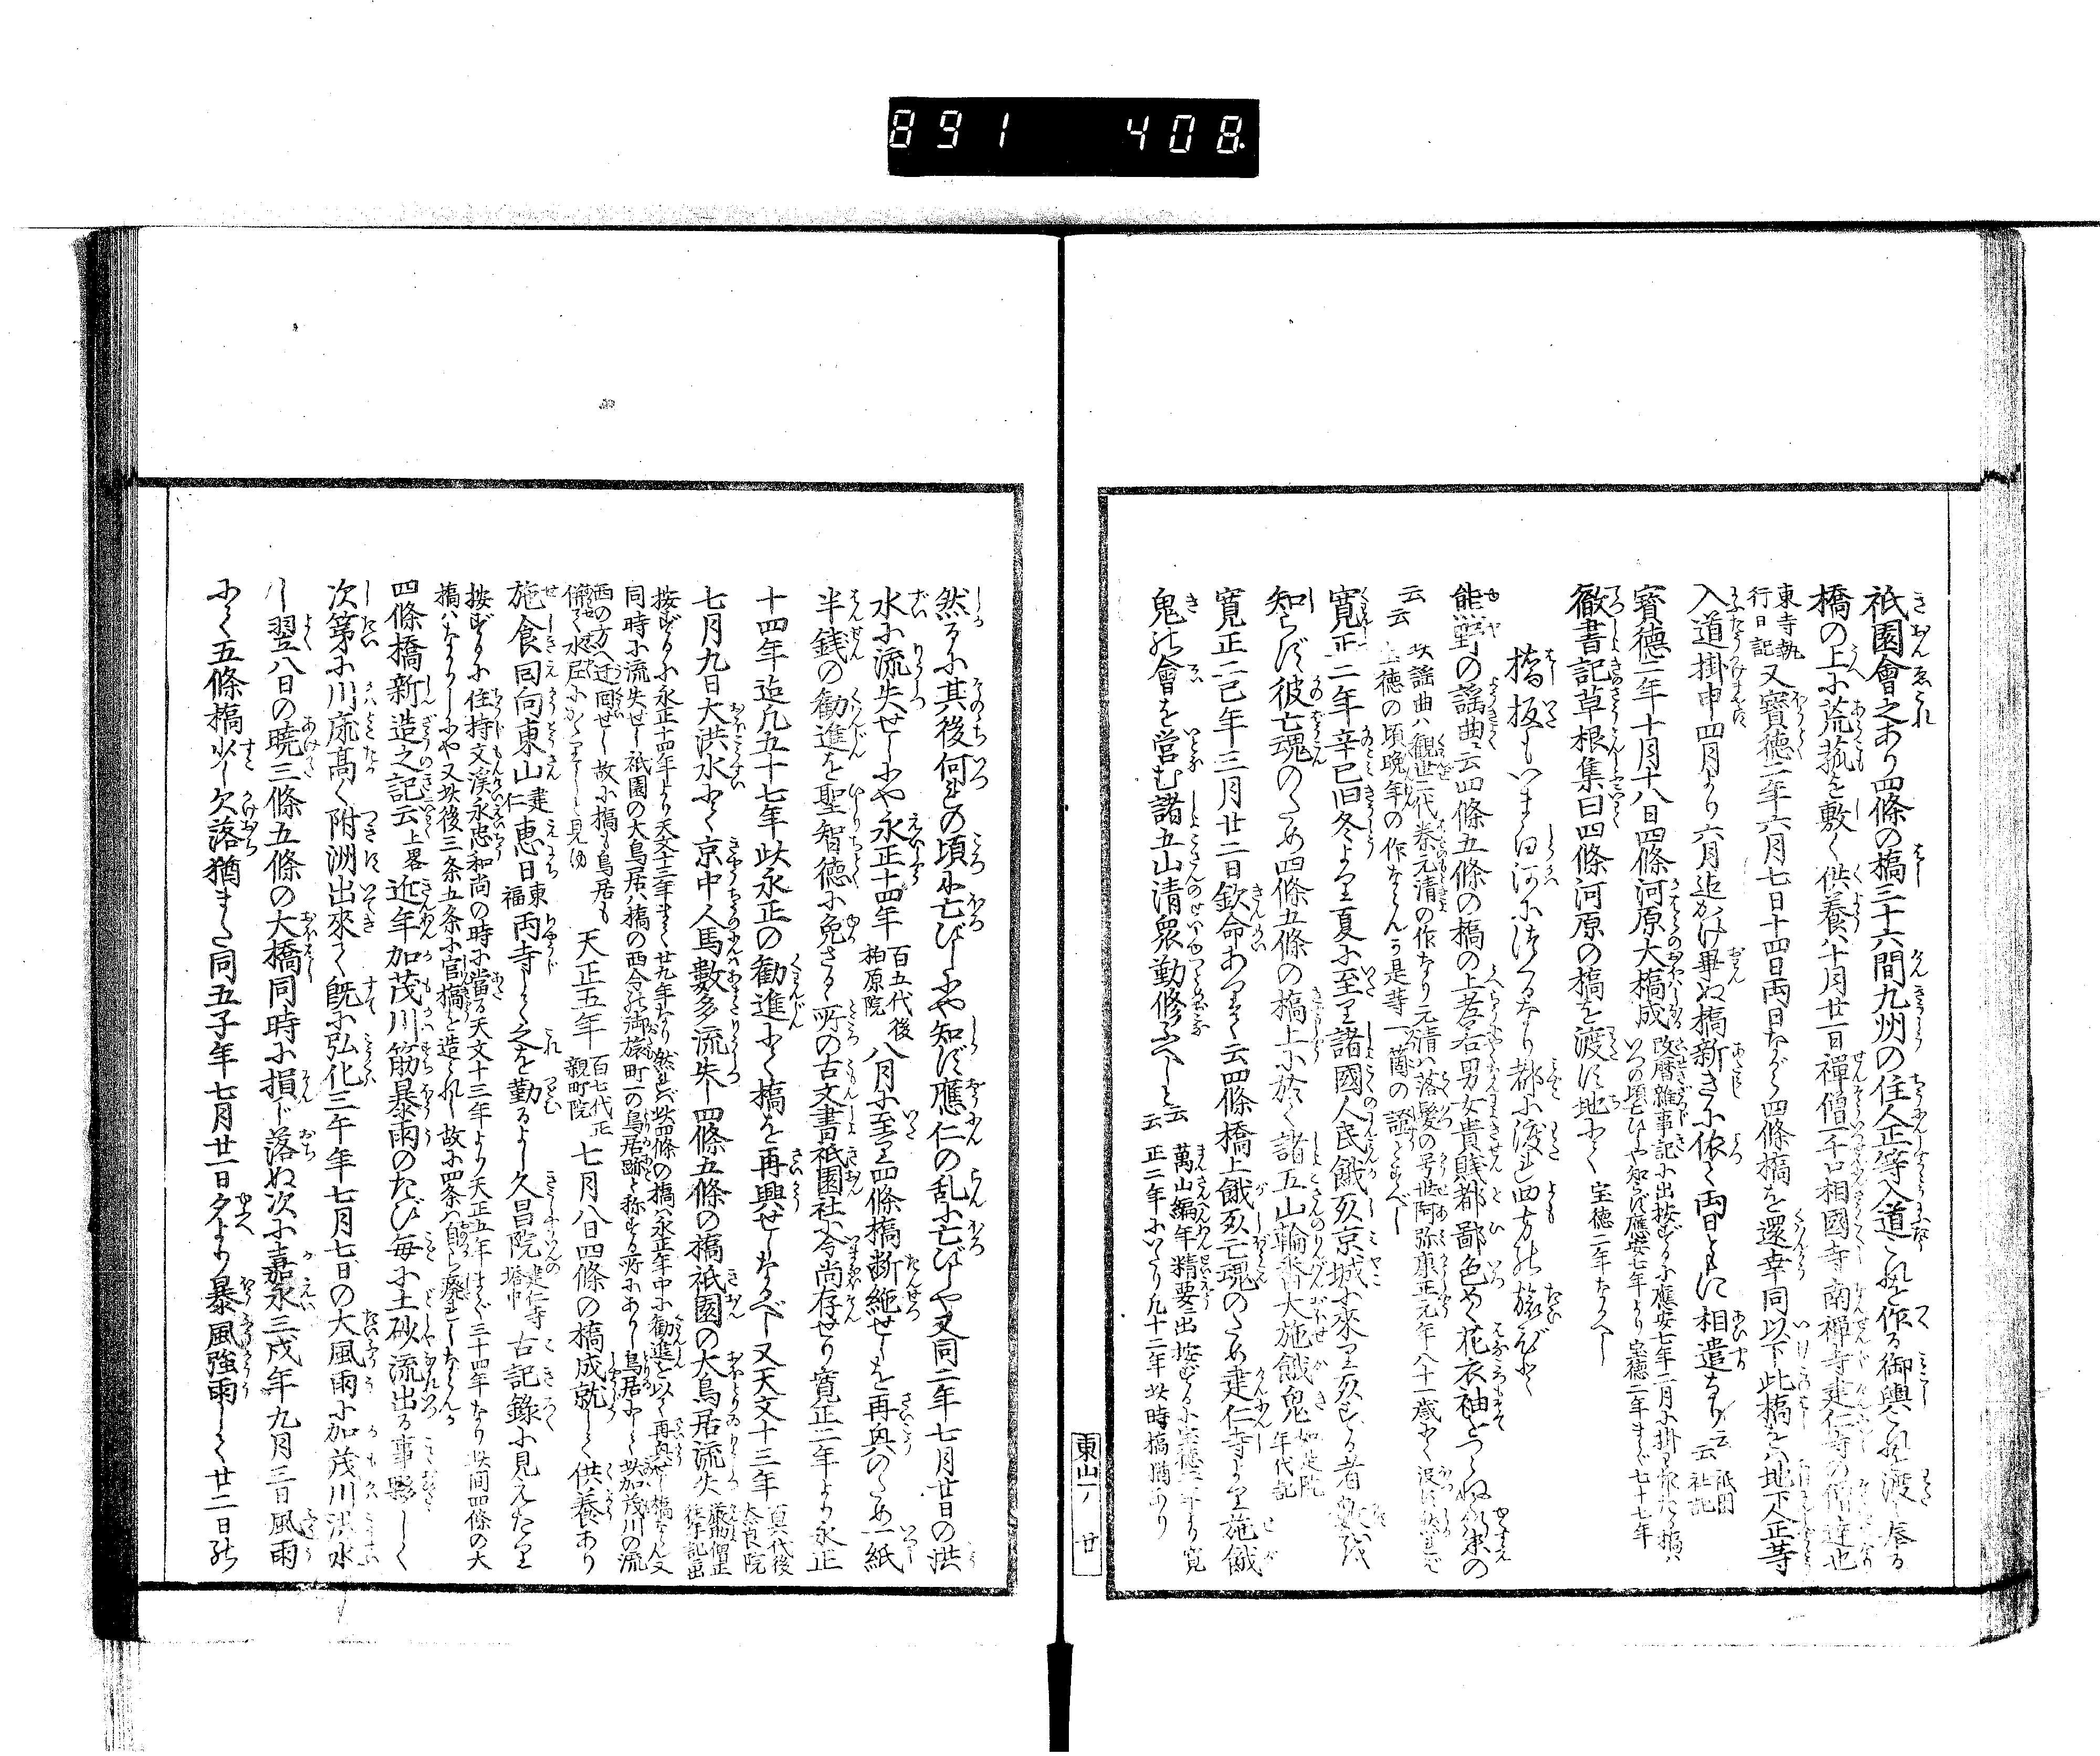 891 408
祇園會之あり四條の橋三十六間九州の住人正等入道これを作る御輿これを渡
橋の上に荒菰を敷く供養八十月廿一日禪僧一千口相國寺南禪寺建仁寺の僧達也
東寺執行日記 又寳徳二年六月七日十四日両日ながら四條橋を還幸同以下此橋をハ地下人正等
入道掛申四月より六月迄かけ畢ぬ橋新きに依て両日ともに相違なり云云 祇園社記
寳徳二年十月十八日四條河原大橋成 改暦雑事記に出按ずるに應安七年二月に掛
いつの頃亡ひしや知らず應安七年より宝徳二年まで七十七年
徹書記草根集曰四條河原の橋を渡す地にて 宝徳二年なるべし
橋板もいま白河につくるなり都に渡せ四方の旅びと
熊野の謡曲云四條五條の橋の上老若男女貴賤都鄙色めく花衣袖をつらねて行末の
云云 此謡曲ハ観世二代秦元清の作なり元清ハ落髪の号世阿弥康正元年八十一歳にて没す
宝徳の頃晩年の作ならんか是等一箇の證とすべし
寛正二年辛巳旧冬より夏に至り諸國人民餓死京城に來り死する者
知らず彼亡魂のため四條五條の橋上に於て諸五山輪番大施餓鬼 年代記
寛正二巳年三月廿二日欽命ありて云四條橋上餓死亡魂のため建仁寺より施餓
鬼の會を営む諸五山清衆勤修すべしと云云 萬山編年精要ニ出按ずるに宝徳二年より寛
正二年にいたり凡十二年此時橋猶あり
東山一ノ 廿
然るに其後何れの頃に亡びしにや知ず應仁の乱に亡びしや又同二年七月廿日の洪
水に流失せしにや永正十四年 百五代後柏原院 八月に至り四條橋断絶せしを再興のため一紙
半銭の勧進を聖智徳に免さる所の古文書祇園社に今尚存せり寛正二年より永正
十四年迄凡五十七年此永正の勧進にて橋を再興せしなるべし又天文十三年 百六代後奈良院
七月九日大洪水にて京中人馬數多流失し四條五條の橋祇園の大鳥居流失 厳助僧正往年記出
按ずるに永正十四年より天文十三年まで廿九年なり然れば此四條の橋ハ永正年中に勧進を以て再興せし橋ならん又
同時に流失せし祇園の大鳥居ハ橋の西今の御旅町一の鳥居跡と称する所にありし鳥居にして其加茂川の流
西の方へ迂囘せし故に橋も鳥居も
倶せて水屈にかゝりしと見ゆ 天正五年 百七代正親町院 七月八日四條の橋成就して供養あり
施食回向東山建仁惠日東福両寺して之を勤るよし久昌院 建仁寺塔中 古記録に見えたり
按ずるに住持文渓永忠和尚の時に當る天文十三年より天正五年まで三十四年なり此間四條の大
橋ハなかりしにや又此後三条五条に官橋を造られし故に四条ハ自ら廃せしならんか
四條橋新造之記云 上畧 近年加茂川筋暴雨のたび毎に土砂流出る事夥しく
次第に川床髙く附洲出來て既に弘化三午年七月七日の大風雨に加茂川洪水
し翌八日の暁三條五條の大橋同時に損じ落ぬ次に嘉永三戌年九月三日風雨
にて五條橋少し欠落猶また同五子年七月廿一日夕より暴風強雨して廿二日の